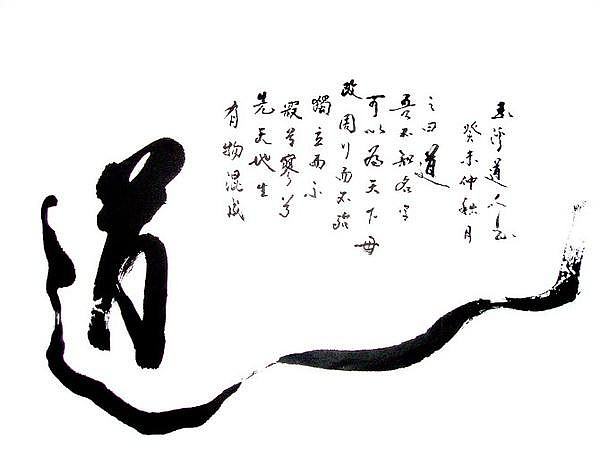 道
有物混成
先天地生
寂兮寥兮
獨立而不
改周行而不殆
可以為天下母
吾不知名字
之曰道
癸未仲秋月
道人